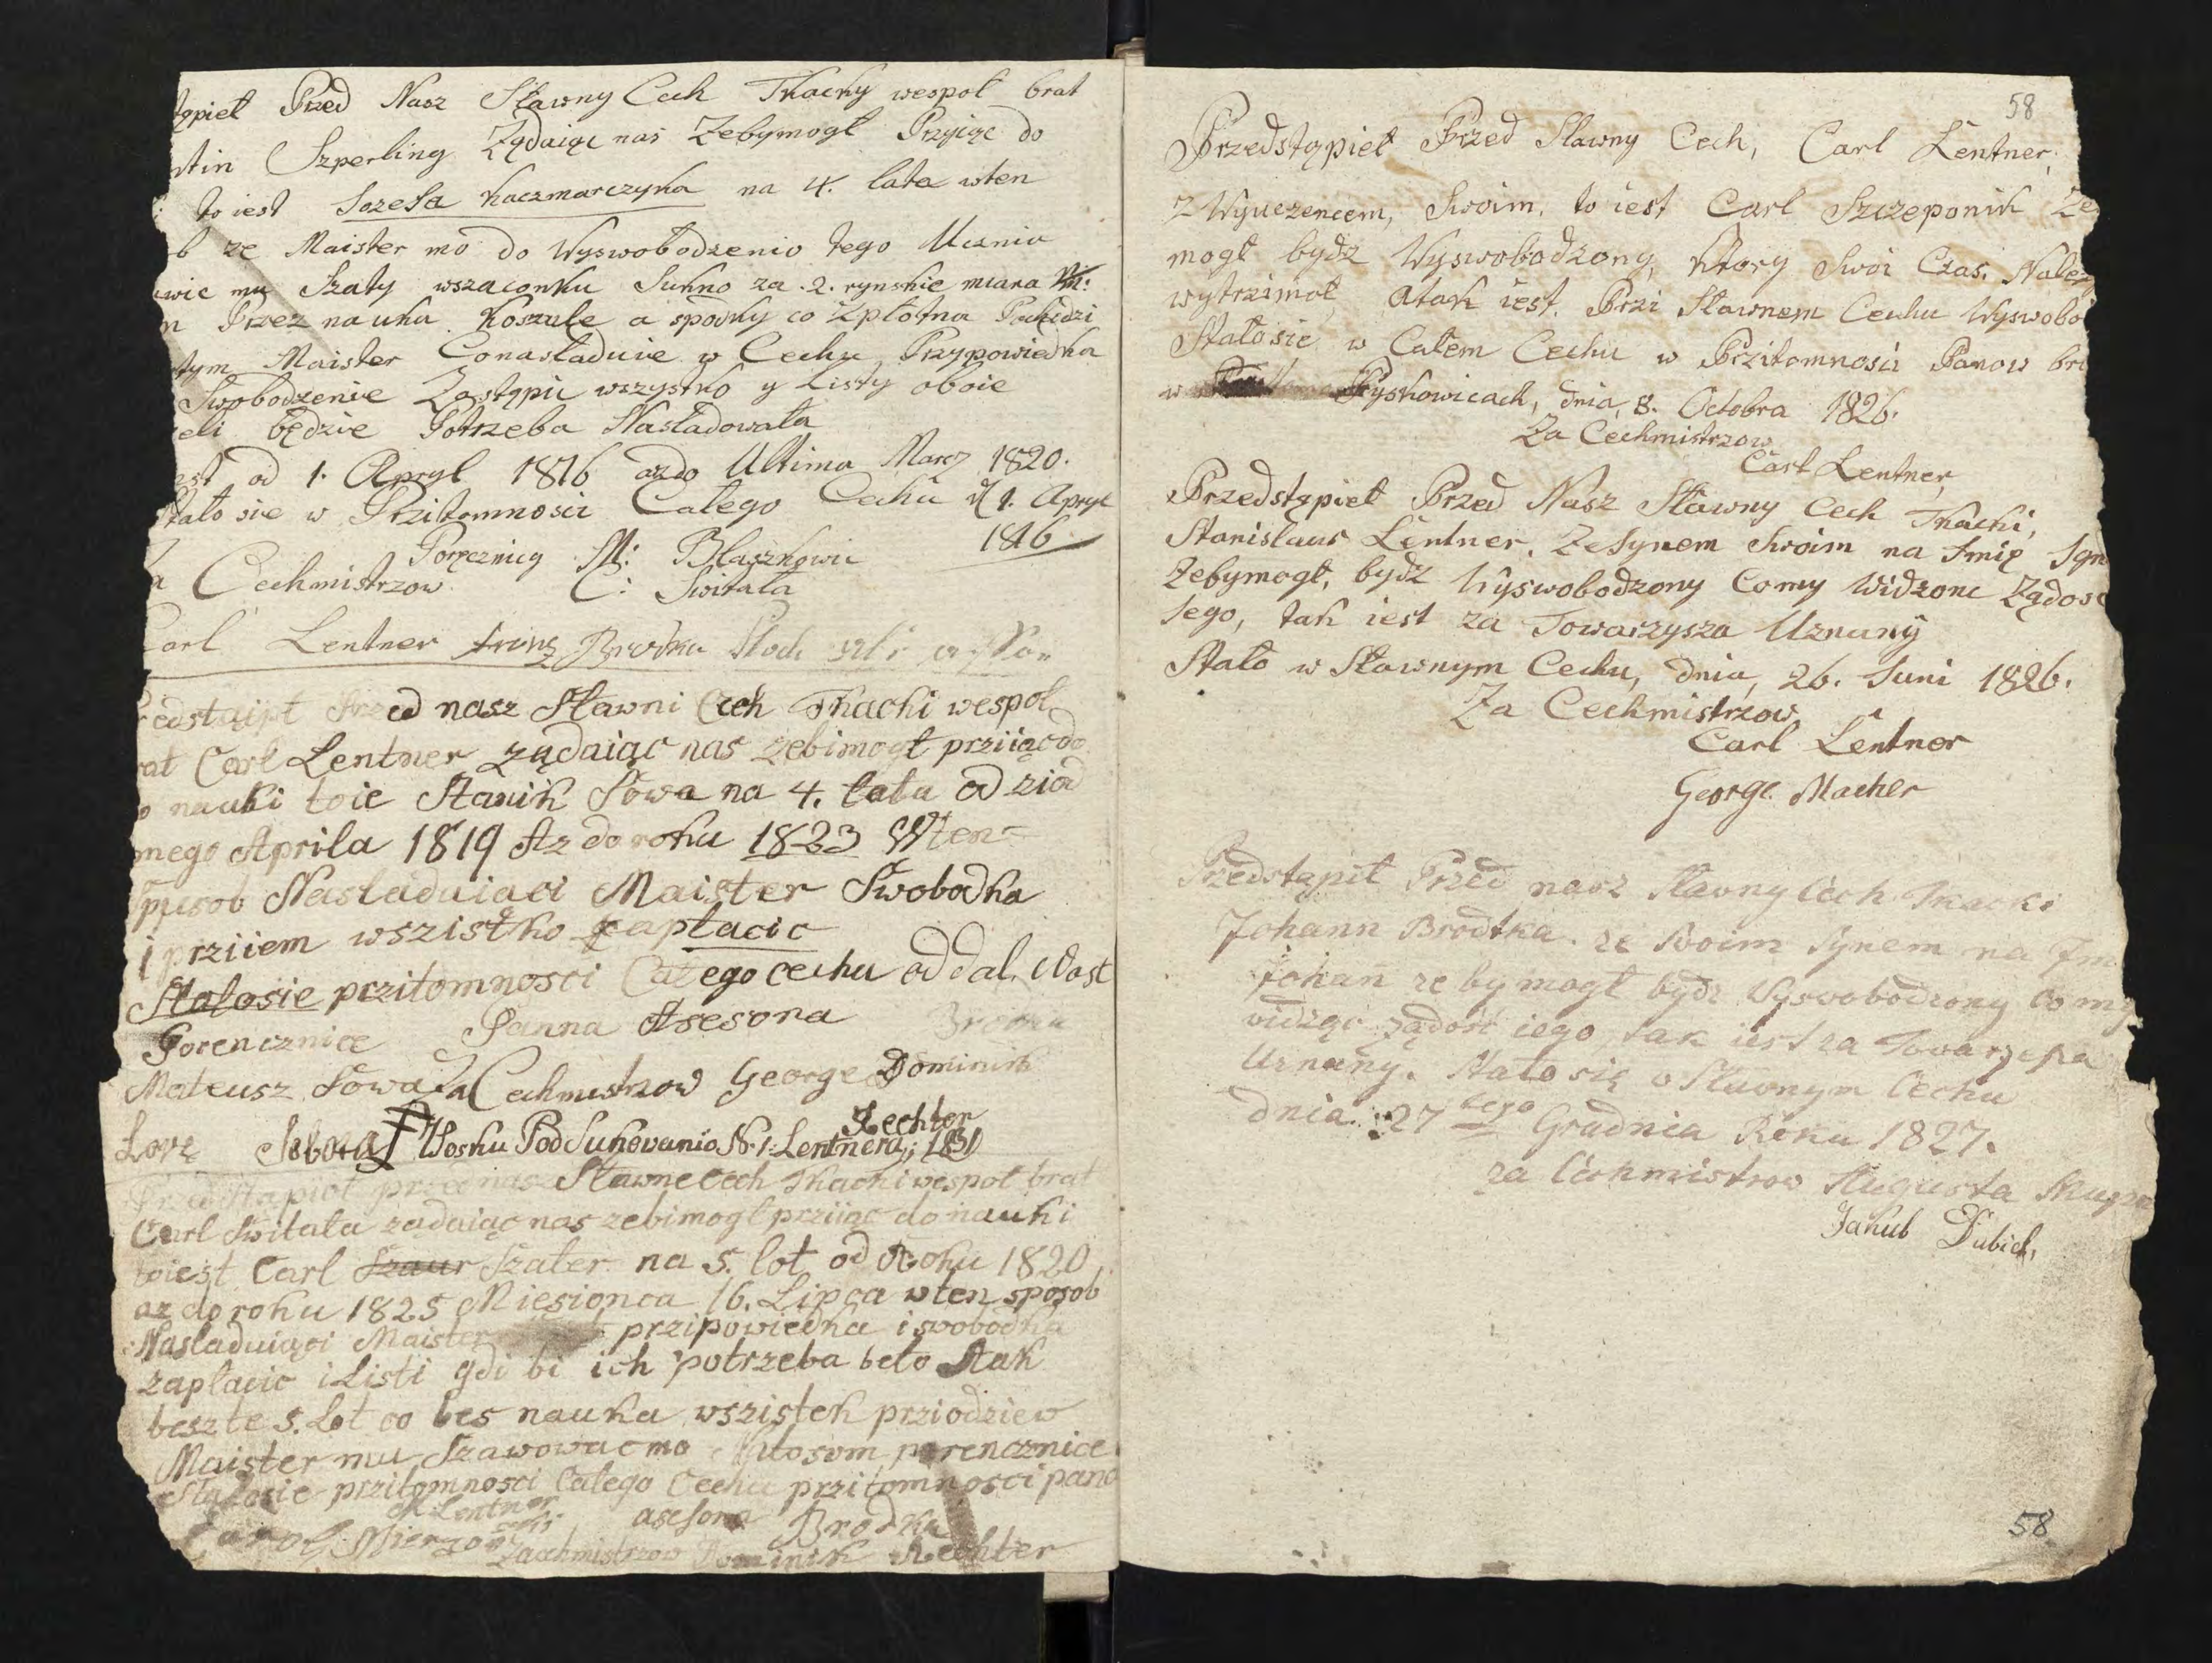 tąpiel Przed Nasz Sławny Cech Tkacky wespoł brat
stin Szperling Żądaiąc nas Zebymogł Przyiąc do
to iest Jozefa Kaczmarczyka na 4. lata wten
b ze Maister mo do Wyswobodzenio tego Ucznia
wic mu Szaty wszaconku Sukno za .2. rynskie miara
n Przez nauka Koszule a spodky co Zpłotna Pochodzi
tym Maister Conasladuie w Cechu Przypowiedka
Swobodzenie Zastąpic wszystko y Listy oboie
eli będzie Potrzeba Nasladowała
est od 1. Apryl 1816 azdo Ultima Marcz 1820.
Stało sie w Przitomnosci Całego Cechu d 1. Apryl
1816
Poręcznicy M: Blaszkowic
a Cechmistrzow C: Switała
Carl Lentner Franz Brodka
redstąipł Przed nasz Sławni Cech Tkacki wespoł
rat Carl Lentner żądaiąc nas zebimogł prziiąc do
o nauki toie Stanik Sowa na 4. lata od ziad
nego Aprila 1819 Az do roku 1823 Wten
Spusob Nasladuiaci Maister Swobodka
i prziiem wszistko zapłacic
Stałosie przitomnosci Całego cechu oddal. Wast
Porencznice Panna Asesora Brodka
Mateusz Sowa Za Cechmistrzow George Dominik
Rechter
Lorę Sobota Wosku Pod Suhovanio N. 1: Lentnera; 1831
Przedstąpioł przed nas Sławne cech Tkacki wespoł brat
Carl Switala zadaiąc nas zebimogl prziiąc do nauki
toiest Carl Szaur Szater na 5. lot od Roku 1820
az do roku 1825 Miesionca 16. Lipca w ten sposob
Nasladuiąci Maister przipowiedka i swobodka
zapłacic i Listi gdi bi ich potrzeba beło Atak
beszte 5. Lot co bes nauka wszistek prziodziew
Maister mu Szawowac mo Kłosom porencznice
Stałosie przitomnosci Całego Cechu przitomnosci pano
M Lentner asesora Brodka
Karol Mierzon Zacechmistrzow Dominik Rechter
58
Przedstąpieł Przed Sławny Cech, Carl Lentner,
z Wyuczencem, Swoim, to iest Carl Szczeponik Ze
mogł bydz Wyswobodzony, Ktory Swoi Czas, Nalez
wytrzimoł, Atak iest. Przi Sławnem Cechu Wyswobo
Stałosie w Całem Cechu w Przitomnosci Panow bra
w Pyskowicach, dnia, 8. Octobra 1826.
Za Cechmistrzow
Carl Lentner,
Przedstąpieł Przed Nasz Sławny Cech Tkacki,
Stanislaus Lentner, Zesynem Swoim na Imię Ign
Zebymogł, bydz Wyswobodzony Comy Widzonc Żądosc
Jego, tak iest za Towarzysza Uznany
Stało w Sławnym Cechu, dnia, 26. Juni 1826.
Za Cechmistrzow
Carl Lentner
George Macher
Przedstąpił Przed nasz Sławny Cech Tkacki
Johann Brodtka. ze Swoim Synem na Im
Johan ze by mogł bydz Wyswobodzony Co my
widząc ządość iego, tak iest za Towarzysza
Uznany. Stało się w Sławnym Cechu
dnia 27 tego Grudnia Roku 1827.
za Cechmistrow Augusta Skupin
Jakub Dubiel,
58